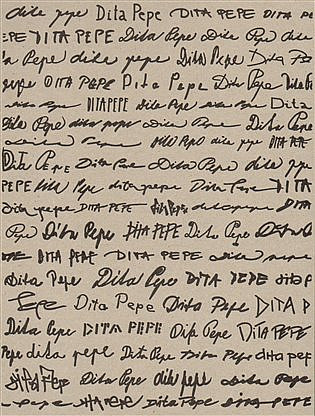 dita pepe Dita Pepe DITA PEPE DITA PE
PE DITA PEPE Dita Pepe Dita Pepe dita
a Pepe dita pepe Dita Pepe Dita Pe
pepe DITA PEPE Dita Pepe Dita Pepe Dita Pe
Pepe DITA PEPE Dita Pepe Dita Pepe Dita
Dita Pepe dita pepe Dita Pepe Dita Pepe
Dita Pepe dita pepe DITA PEPE
DITA PEPE Dita Pepe Dita Pepe dita pepe
PEPE Dita Pepe dita pepe Dita Pepe DITA
dita pepe DITA PEPE Dita Pepe dita pepe DITA
Pepe Dita Pepe DITA PEPE Dita Pepe
DITA PEPE DITA PEPE dita pepe
Dita Pepe Dita Pepe DITA PEPE DITA P
Pepe Dita Pepe Dita Pepe DITA P
Dita Pepe DITA PEPE Dita Pepe DITA PEPE
Pepe dita pepe Dita Pepe Dita Pepe dita pep
Dita Pepe dita pepe Dita Pepe
Pepe DITA PEPE Dita Pepe DITA PEPE